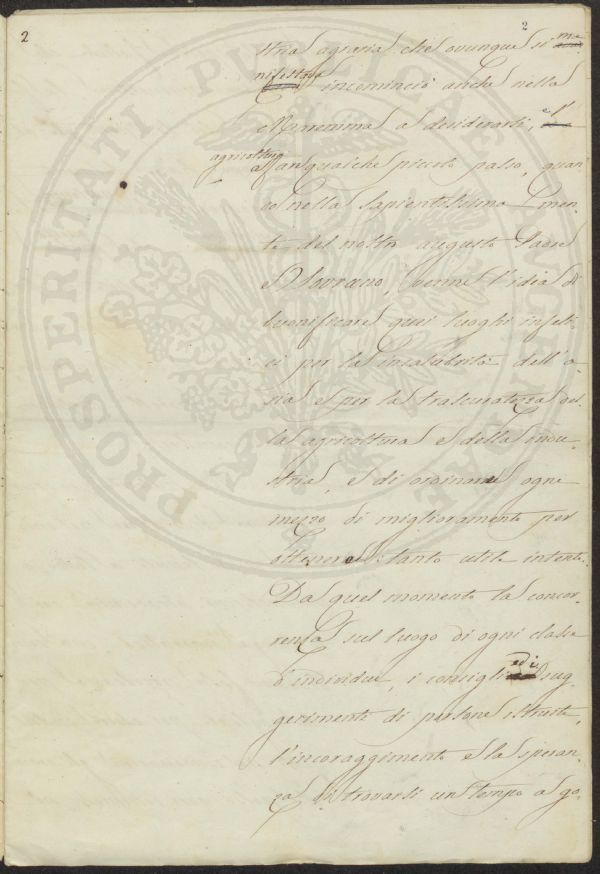 2
2
stria agraria che ovunque si ma
nifestava incominciò anche nella
Maremma a desiderarsi, e l'
agricoltura
a far qualche piccolo passo, quan
do nella Sapientissima Men
te del nostro augusto Padre
e Sovrano, venne l'idea di
buonificare quei luoghi infeli
ci per la insalubrità dell'a
ria e per la trascuratezza del
la agricoltura e della indu
stria, e di ordinare ogni
mezzo di miglioramento per
ottenere tanto utile intento.
Da quel momento la concor
renza sul luogo di ogni classe
d'individui, i consigli ed i sug
gerimenti di persone istruite,
l'incoraggimento e la speran
za di trovarsi un tempo a go
PROSPERITATI PUBLICAE AUGENDAE